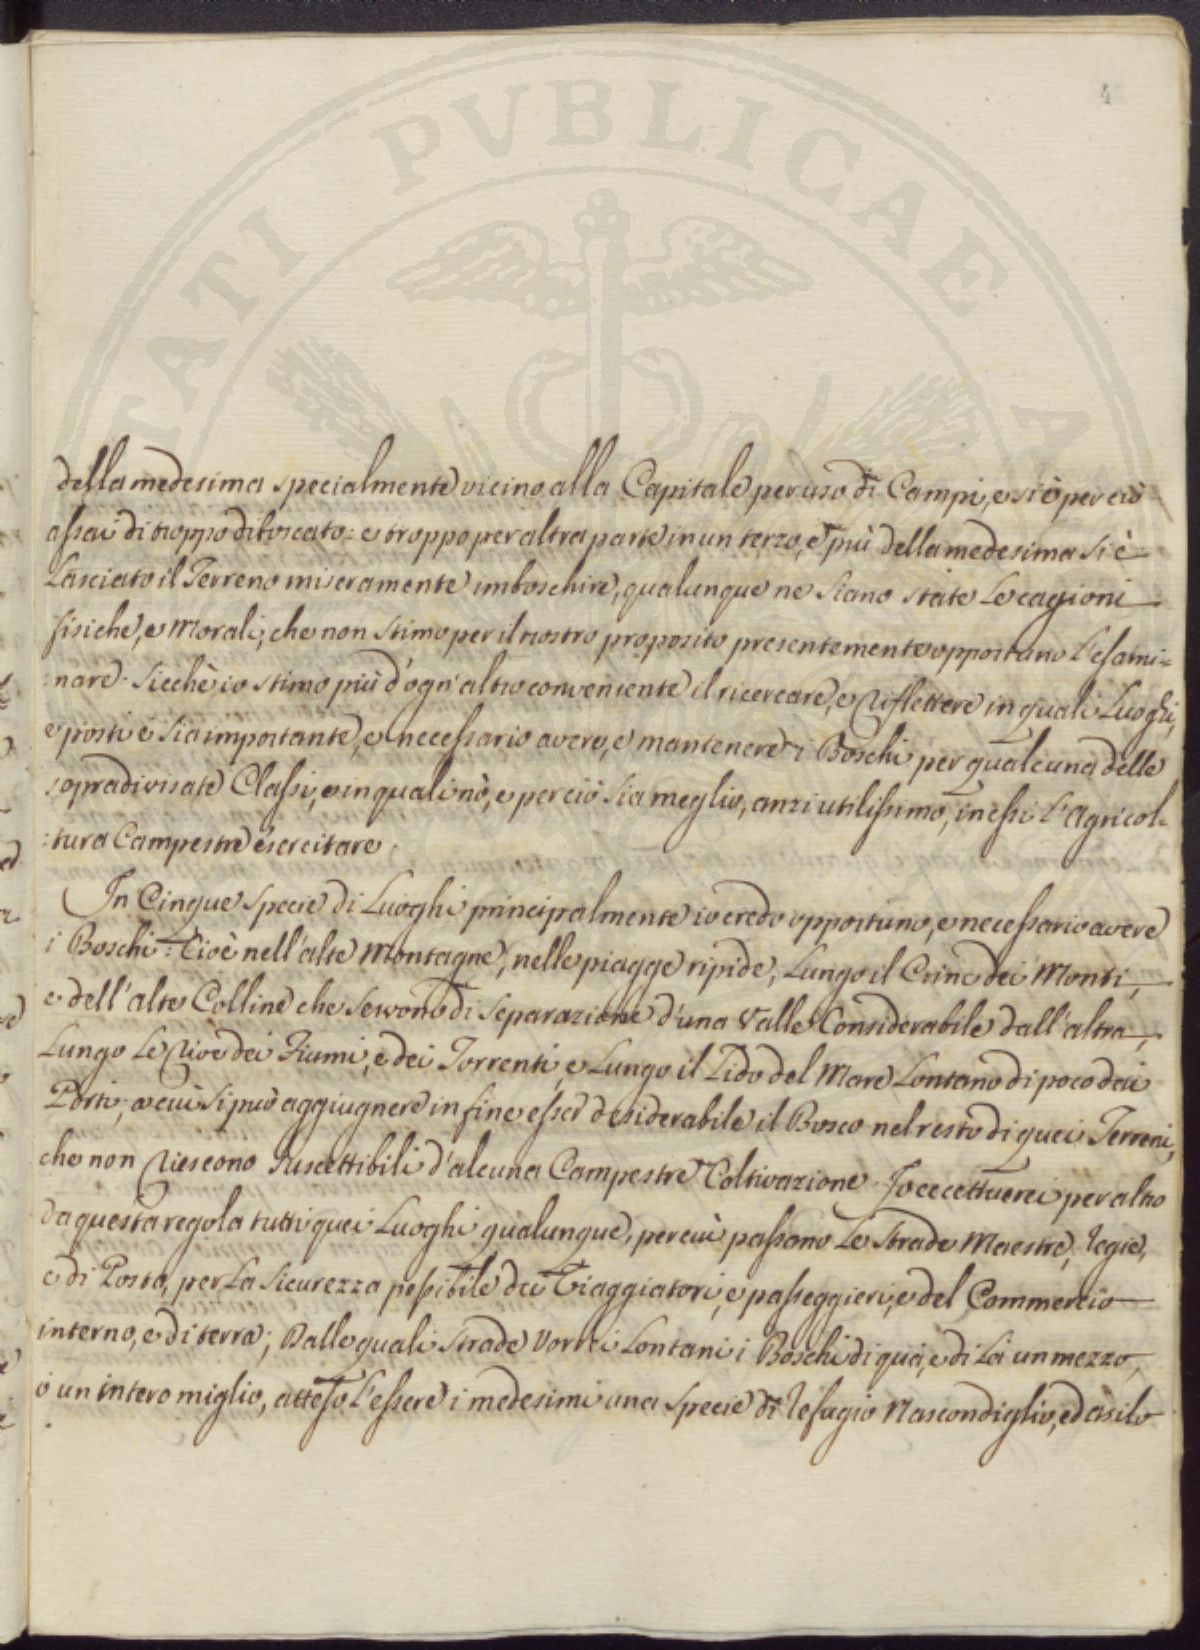 4
PROSPERITATI PVBLICAE A
della medesima specialmente vicino alla Capitale per uso di Campi, e si è perciò
assai di troppo diboscato: e troppo per altra parte in un terzo, e più della medesima si è
Lasciato il Terreno miseramente imboschire, qualunque ne siano state Le cagioni
fisiche, e Morali; che non stimo per il nostro proposito presentemente opportuno l'esami=
=nare. Sicchè io stimo più d'ogn'altro conveniente il ricercare, e riflettere in quali Luoghi,
e posti è sia importante, e necessario avere, e mantenere i Boschi per qualcuna delle
sopradivisate Classi, e in quali nò, e perciò sia meglio, anzi utilissimo, in essi l'Agricol=
=tura Campestre esercitare.
In Cinque Specie di Luoghi principalmente io credo opportuno, e necessario avere
i Boschi: Cioè nell'alte Montagne, nelle piagge ripide, Lungo il Crine dei Monti,
e dell'alte Colline che servono di separazione d'una Valle Considerabile dall'altra,
Lungo Le rive dei Fiumi, e dei Torrenti, e Lungo il Lido del Mare Lontano di poco dai
Porti; a cui si può aggiugnere in fine esser desiderabile il Bosco nel resto di quei Terreni,
che non riescono suscettibili d'alcuna Campestre Coltivazione. Io eccettuerei per altro
da questa regola tutti quei Luoghi qualunque, per cui passano Le Strade Maestre, regie,
e di Posta, per La sicurezza possibile dei Viaggiatori, e passeggieri, e del Commercio
interno, e di terra; Dalle quali strade Vorrei Lontani i Boschi di quà, e di Là un mezzo,
ò un intero miglio, atteso l'essere i medesimi una specie di refugio Nascondiglio, ed asilo